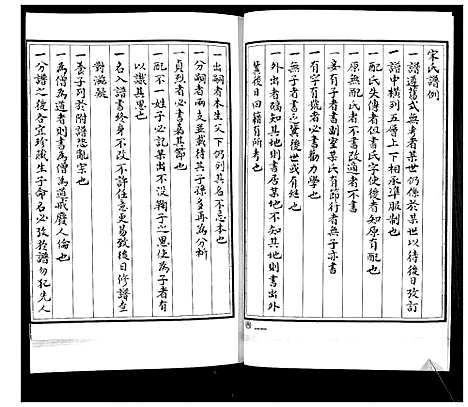 宋氏譜例
一譜遵舊式無考者某世仍傳於某世以待後日改訂
一譜中橫列五層上下相承準服制也
一配氏失傳者但書氏字使後者知原有配也
一原無配氏者不書改適者不書
一妾有子者書副室某氏有節行者無子亦書
一有字有號者必書勸力學也
一無子者書止冀後世或有繼也
一外出者確知其地則書居某地不知其地則書出外
冀後日回籍有所考也
一出嗣者本生父下仍列其名不忘本也
一分嗣者兩支並載待其子孫多再為分析
一貞烈者必書嘉其節也
一配不一姓子必記某出不沒鞠子之恩使為子者有
以識其恩也
一名入譜書終身不改不許任意更易致後日修譜查
對滋疑
一養子列於附譜恐亂宗也
一為僧為道者則書為僧為道戒廢人倫也
一分譜之後各宜珍藏生子命名必攷於譜勿犯先人